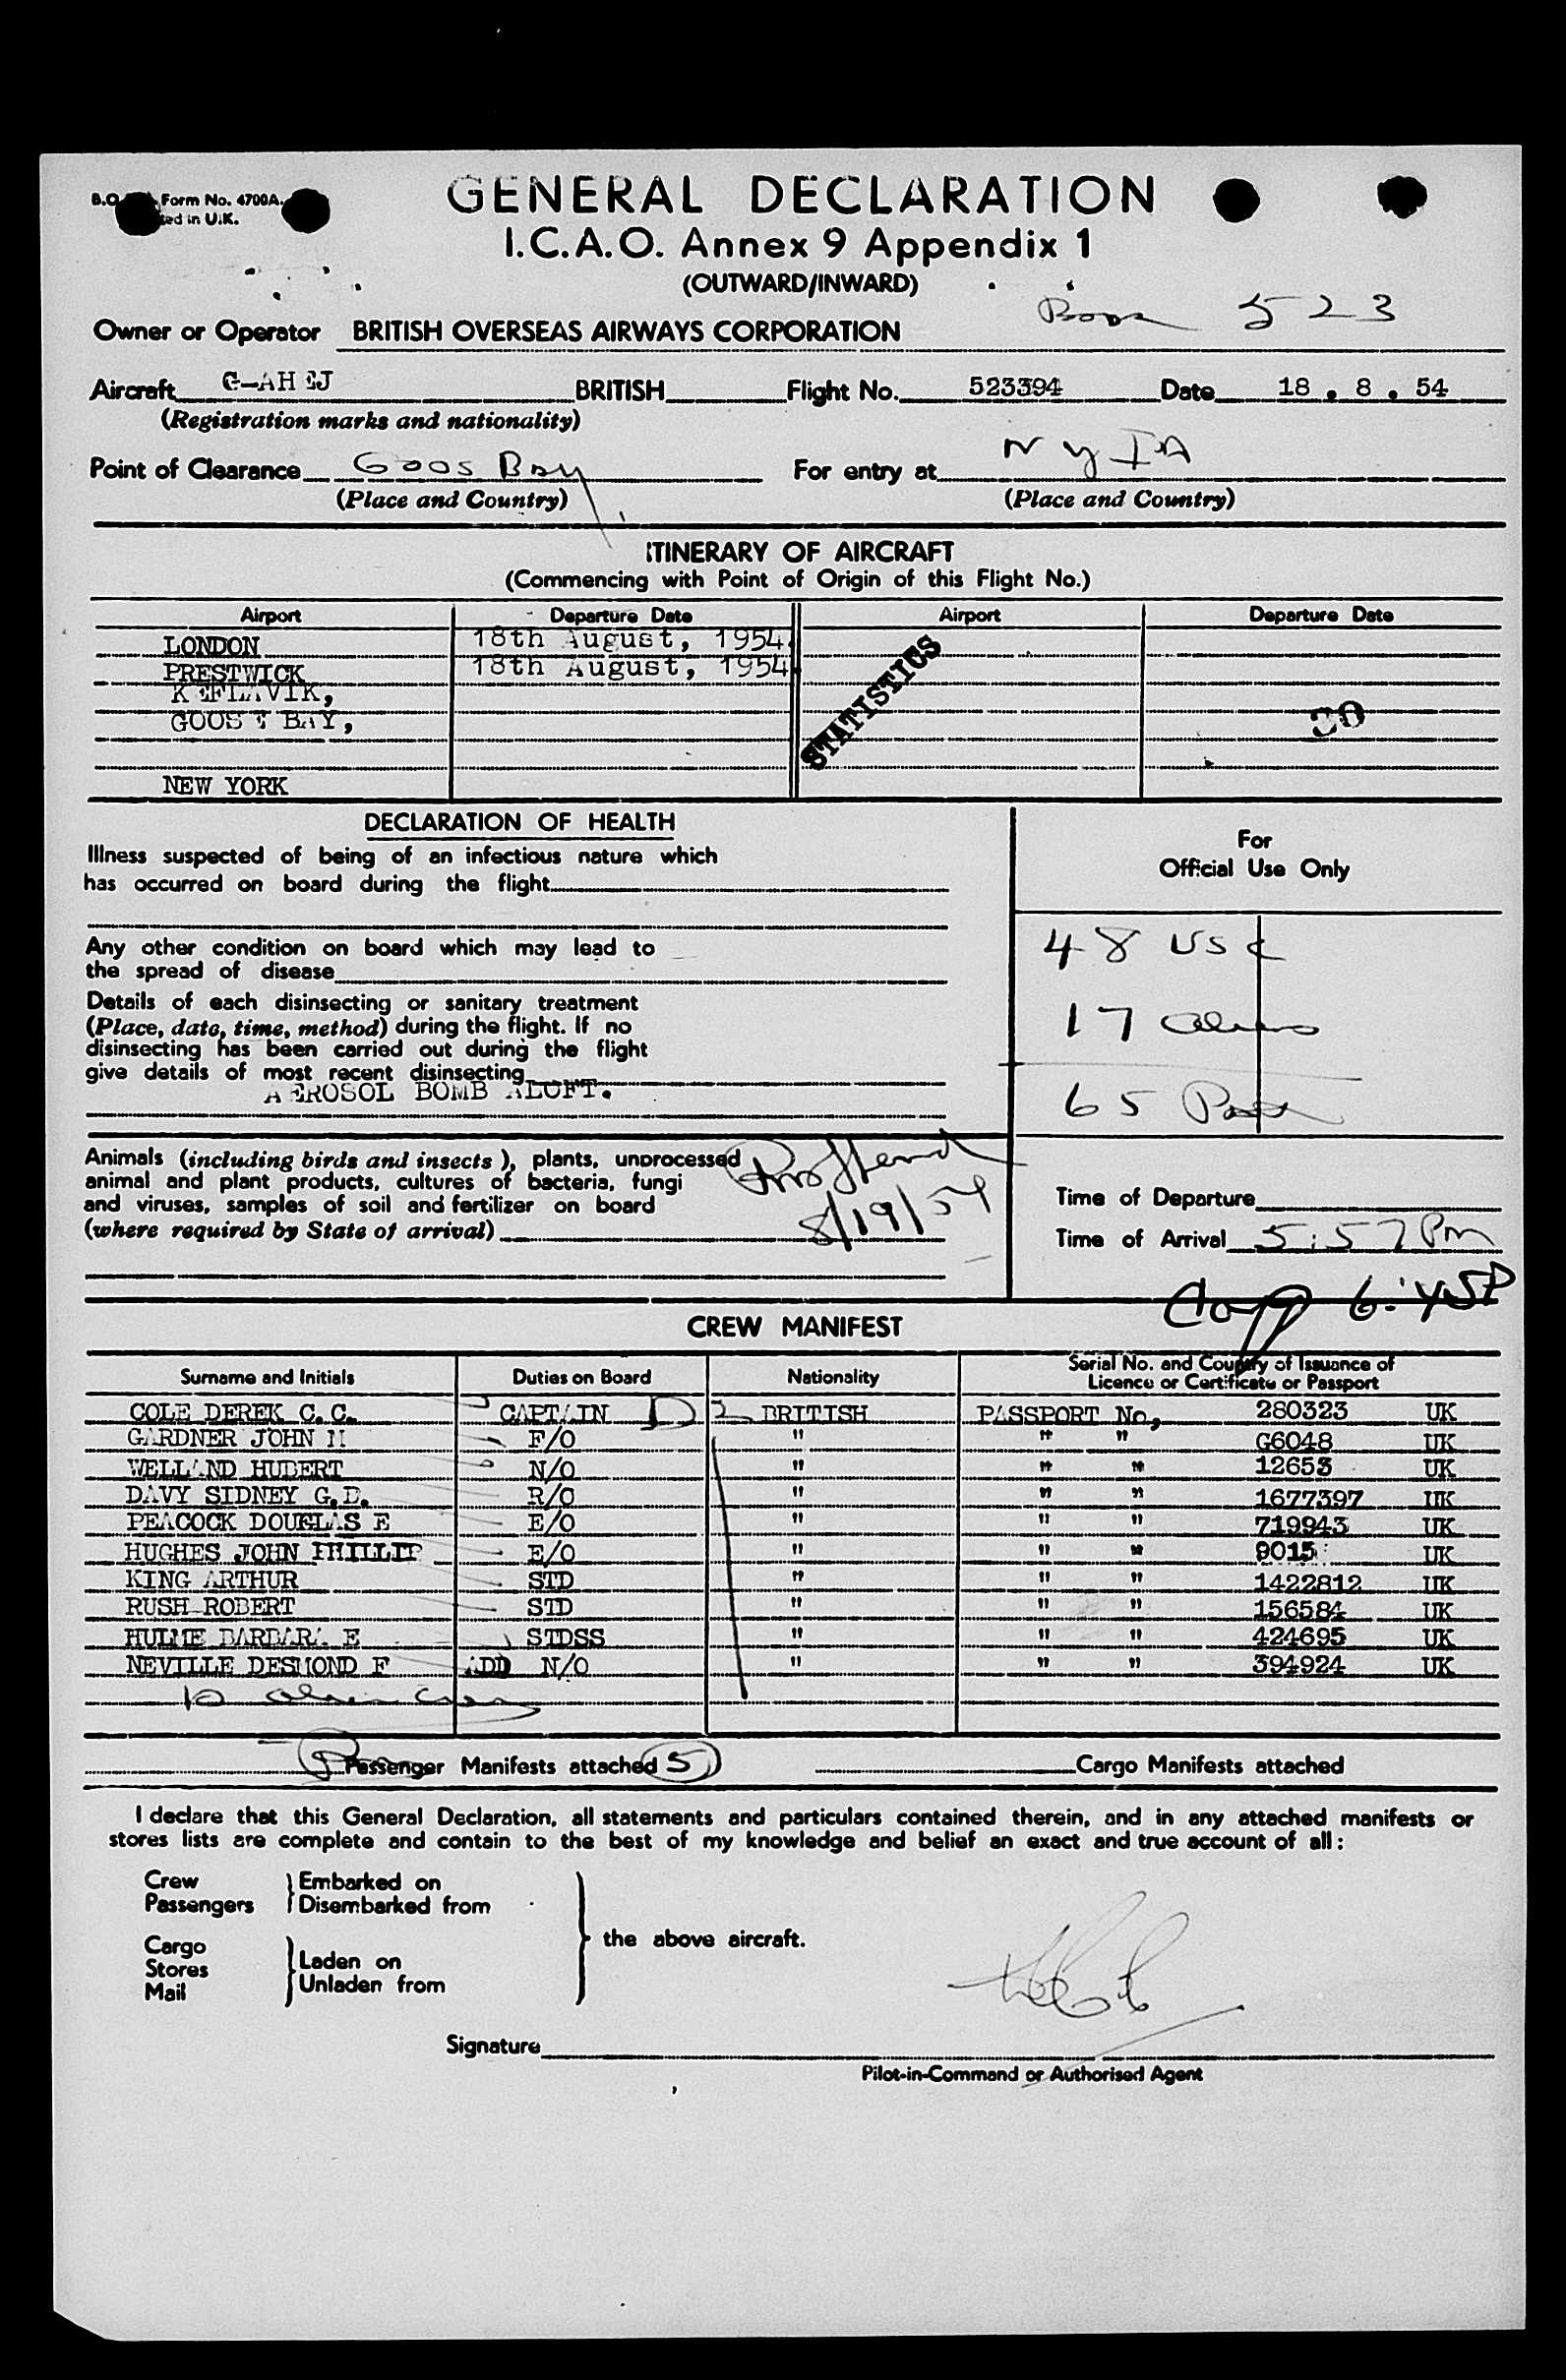 GENERAL DECLARATION
Form No. 4700A.
in U.K.
I.C.A.O. Annex 9 Appendix 1
(OUTWARD/INWARD)
523
Owner or Operator BRITISH OVERSEAS AIRWAYS CORPORATION
Aircraft G-AHEJ BRITISH Flight No. 523394 Date 18 . 8 . 54
(Registration marks and nationality)
Point of Clearance Goos Bay For entry at NYIA
(Place and Country) (Place and Country)
ITINERARY OF AIRCRAFT
(Commencing with Point of Origin of this Flight No.)
Airport Departure Date Airport Departure Date
LONDON 18th August, 1954
PRESTWICK 18th August, 1954
KEFLAVIK,
GOOSE BAY,
STATISTICS
NEW YORK
DECLARATION OF HEALTH
For
Official Use Only
Illness suspected of being of an infectious nature which
has occurred on board during the flight
Any other condition on board which may lead to
the spread of disease
Details of each disinsecting or sanitary treatment
(Place, date, time, method) during the flight. If no
disinsecting has been carried out during the flight
give details of most recent disinsecting
AEROSOL BOMB ALOFT.
48 USC
17 aliens
65 Pass
Animals (including birds and insects), plants, unprocessed
animal and plant products, cultures of bacteria, fungi
and viruses, samples of soil and fertilizer on board
(where required by State of arrival)
8/19/54
Time of Departure
Time of Arrival 5:57 Pm
6:45P
CREW MANIFEST
Surname and Initials Duties on Board Nationality Serial No. and Country of Issuance of
Licence or Certificate or Passport
COLE DEREK C.C. CAPTAIN D2 BRITISH PASSPORT No, 280323 UK
GARDNER JOHN H F/O " " " G6048 UK
WELLAND HUBERT N/O " " " 12653 UK
DAVY SIDNEY G.D. R/O " " " 1677397 UK
PEACOCK DOUGLAS E E/O " " " 719943 UK
HUGHES JOHN PHILLIP E/O " " " 9015 UK
KING ARTHUR STD " " " 1422812 UK
RUSH ROBERT STD " " " 156584 UK
HULME BARBARA E STDSS " " " 424695 UK
NEVILLE DESMOND F ADD N/O " " " 394924 UK
10 alien crew
Passenger Manifests attached 5 Cargo Manifests attached
I declare that this General Declaration, all statements and particulars contained therein, and in any attached manifests or
stores lists are complete and contain to the best of my knowledge and belief an exact and true account of all:
Crew
Passengers
Embarked on
Disembarked from
Cargo
Stores
Mail
Laden on
Unladen from
the above aircraft.
Signature
Pilot-in-Command or Authorised Agent